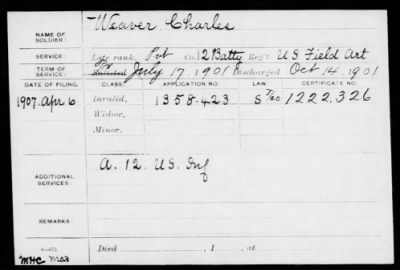 NAME OF SOLDIER: Weaver Charles
SERVICE: Late rank, Pvt Co. 12 Batty Reg't U S Field Art
TERM OF SERVICE: Enlisted July 17, 1901 Discharged Oct 14, 1901
DATE OF FILING. CLASS. APPLICATION NO. CERTIFICATE NO.
1907. Apr 6 Invalid, 1358.423 1222,326
Widow,
Minor,
ADDITIONAL SERVICES: A. 12 U.S. Inf
REMARKS:
Died , 1 , at
MHC